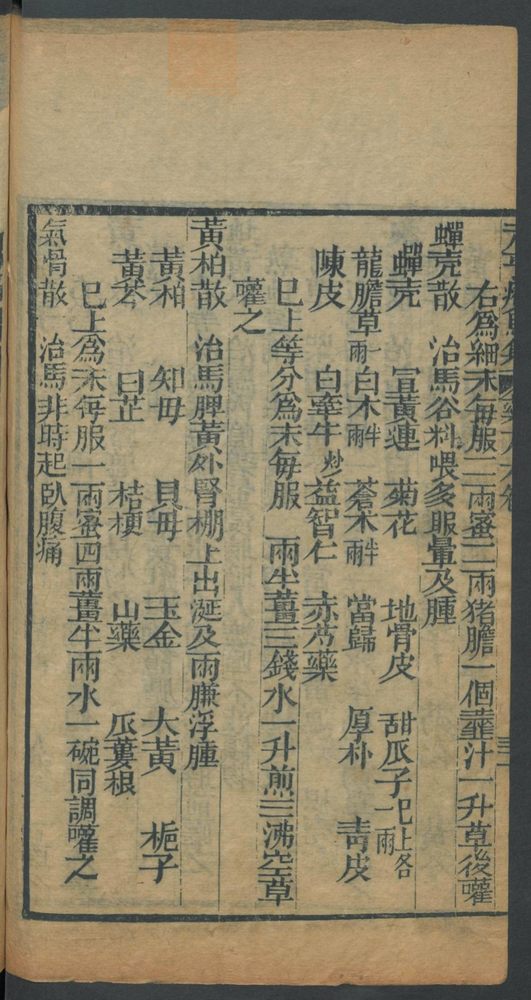 右爲細末每服二兩蜜二兩猪膽一個虀汁一升草後嚾
蟬壳散 治馬谷料喂多眼暈及腫
蟬壳 宣黃連 菊花 地骨皮 甜瓜子已上各一兩
龍膽草一兩 白木半兩 蒼木半兩 當歸 厚朴 靑皮
陳皮 白牽牛炒 益智仁 赤芍藥
已上等分爲末每服一兩半薑三錢水一升煎三沸空草
嚾之
黃柏散 治馬脾黃外腎棚上出涎及兩臁浮腫
黃柏 知母 貝母 玉金 大黃 梔子
黃芩 白芷 桔梗 山藥 瓜蔞根
已上爲末每服一兩蜜四兩薑半兩水一碗同調嚾之
氣骨散 治馬非時起臥腹痛